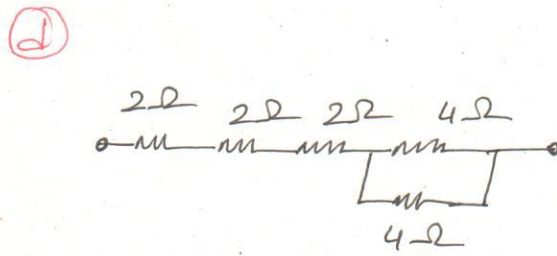 d
2Ω 2Ω 2Ω 4Ω
4Ω